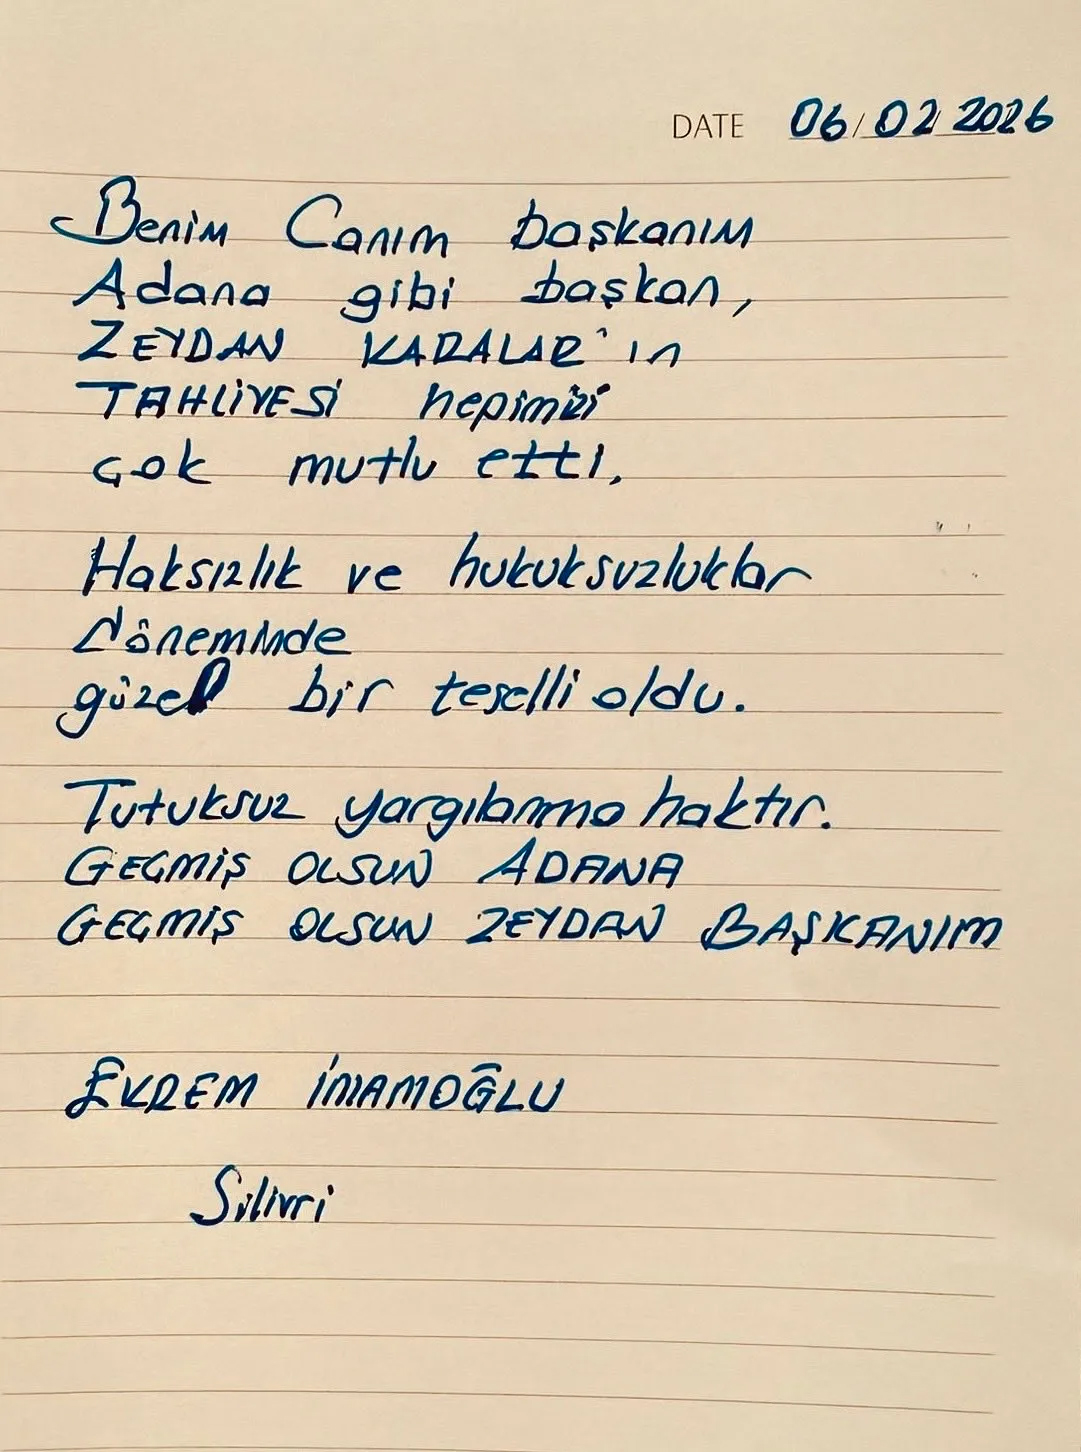 DATE 06/02/2026
Benim Canım başkanım
Adana gibi başkan,
ZEYDAN KARALAR'ın
TAHLİYESİ hepimizi
çok mutlu etti.
Haksızlık ve hukuksuzluklar
döneminde
güzel bir teselli oldu.
Tutuksuz yargılanma haktır.
GEÇMİŞ OLSUN ADANA
GEÇMİŞ OLSUN ZEYDAN BAŞKANIM
EKREM İMAMOĞLU
Silivri